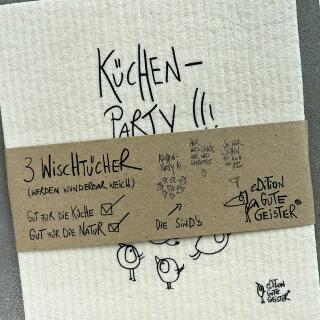 KÜCHEN-
PARTY !!!
3 WISCHTÜCHER
(WERDEN WUNDERBAR WEICH)
GUT FÜR DIE KÜCHE
GUT FÜR DIE NATUR
KÜCHEN-
PARTY !!!
DIE SIND'S
eDITION
GUTE
GEISTER®
eDITION
GUTE
GEISTER®